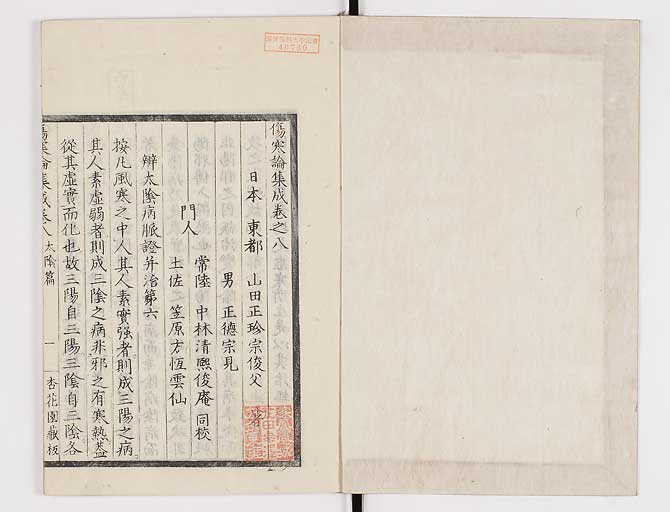 傷寒論集成卷之八
日本 東都 山田正珍宗俊父 著
男 正德宗見
門人
常陸 中林清熙俊庵 同校
土佐 笠原方恆雲仙
辨太陰病脈證并治第六
按凡風寒之中人其人素實强者則成三陽之病
其人素虛弱者則成三陰之病非邪之有寒熱蓋
從其虛實而化也故三陽自三陽三陰自三陰各
傷寒論集成卷八 太陰篇 一 杏花園藏板